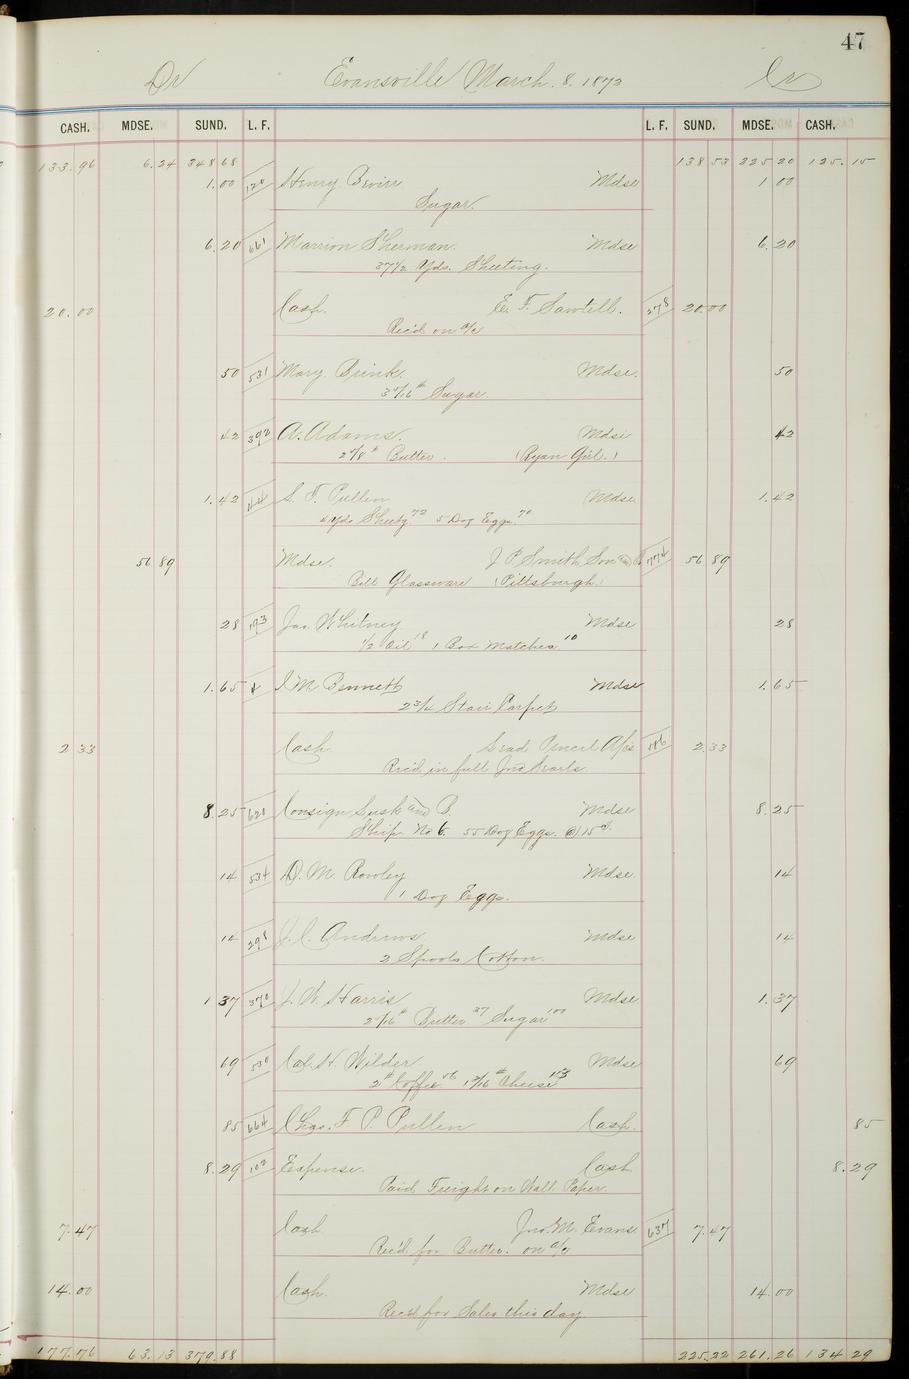 47
Dr Evansville March. 8. 1873 Cr
CASH. MDSE. SUND. L. F. L. F. SUND. MDSE. CASH.
133.96 6.24 348.68 138.53 225.20 125.15
1.00 120 Henry Bevier Mdse 1 00
Sugar.
6.20 661 Marrion Sherman. Mdse 6.20
37 1/2 Yds. Sheeting.
20.00 Cash. E. F. Sawtell. 278 20.00
Rec'd on a/c
50 531 Mary Brink. Mdse. 50
Sugar.
42 392 A. Adams. Mdse 42
Butter. (Ryan Girl.)
1.42 44 S. F. Pullen Mdse 1.42
Yds Sheetg 72 5 Doz Eggs. 70
56 89 Mdse. J P. Smith Son and Co 774 56 89
Bill Glassware (Pittsburgh.)
28 193 Jas. Whitney Mdse 28
1/2 Oil 18 1 Box Matches 10
1.65 I. M. Bennett Mdse 1.65
2 3/4 Stair Carpet
2 33 Cash Lead Pencil A/c 186 2.33
Rec'd in full Jno Searls.
8.25 621 Consign Lusk and B. Mdse 8.25
Ship No 6. 55 Doz Eggs. @ 15 c.
14 534 D. M. Rowley Mdse. 14
1 Doz Eggs.
14 298 J. C. Andrews Mdse 14
2 Spools Cotton.
1 37 370 J. W. Harris Mdse 1.37
Butter 37 Sugar 100
69 530 Cal. H. Wilder Mdse 69
2 # Coffee 56 Cheese 13
85 664 Chas. F. P. Pullen Cash. 85
8.29 102 Expense. Cash. 8.29
Paid Freight on Wall Paper.
7.47 Cash Jno. M. Evans 637 7.47
Rec'd for Butter. on a/c
14.00 Cash. Mdse 14.00
Rec'd for Sales this day
177.76 63.13 379.88 225.22 261.26 134 29